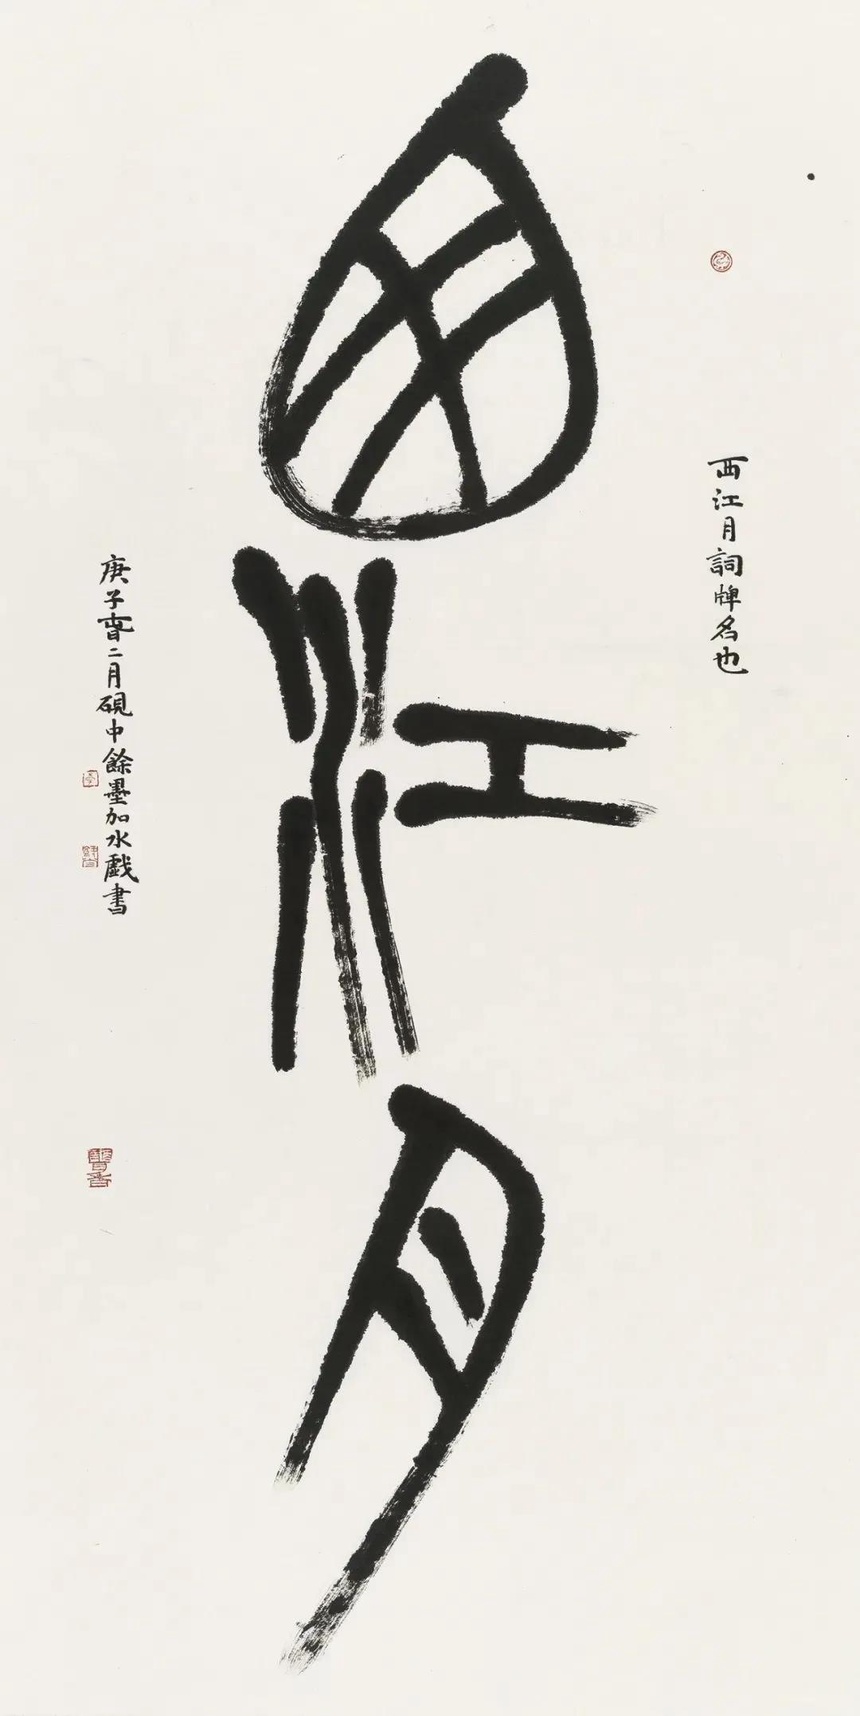 西江月詞牌名也
西江月
庚子春二月硯中餘墨加水戲書